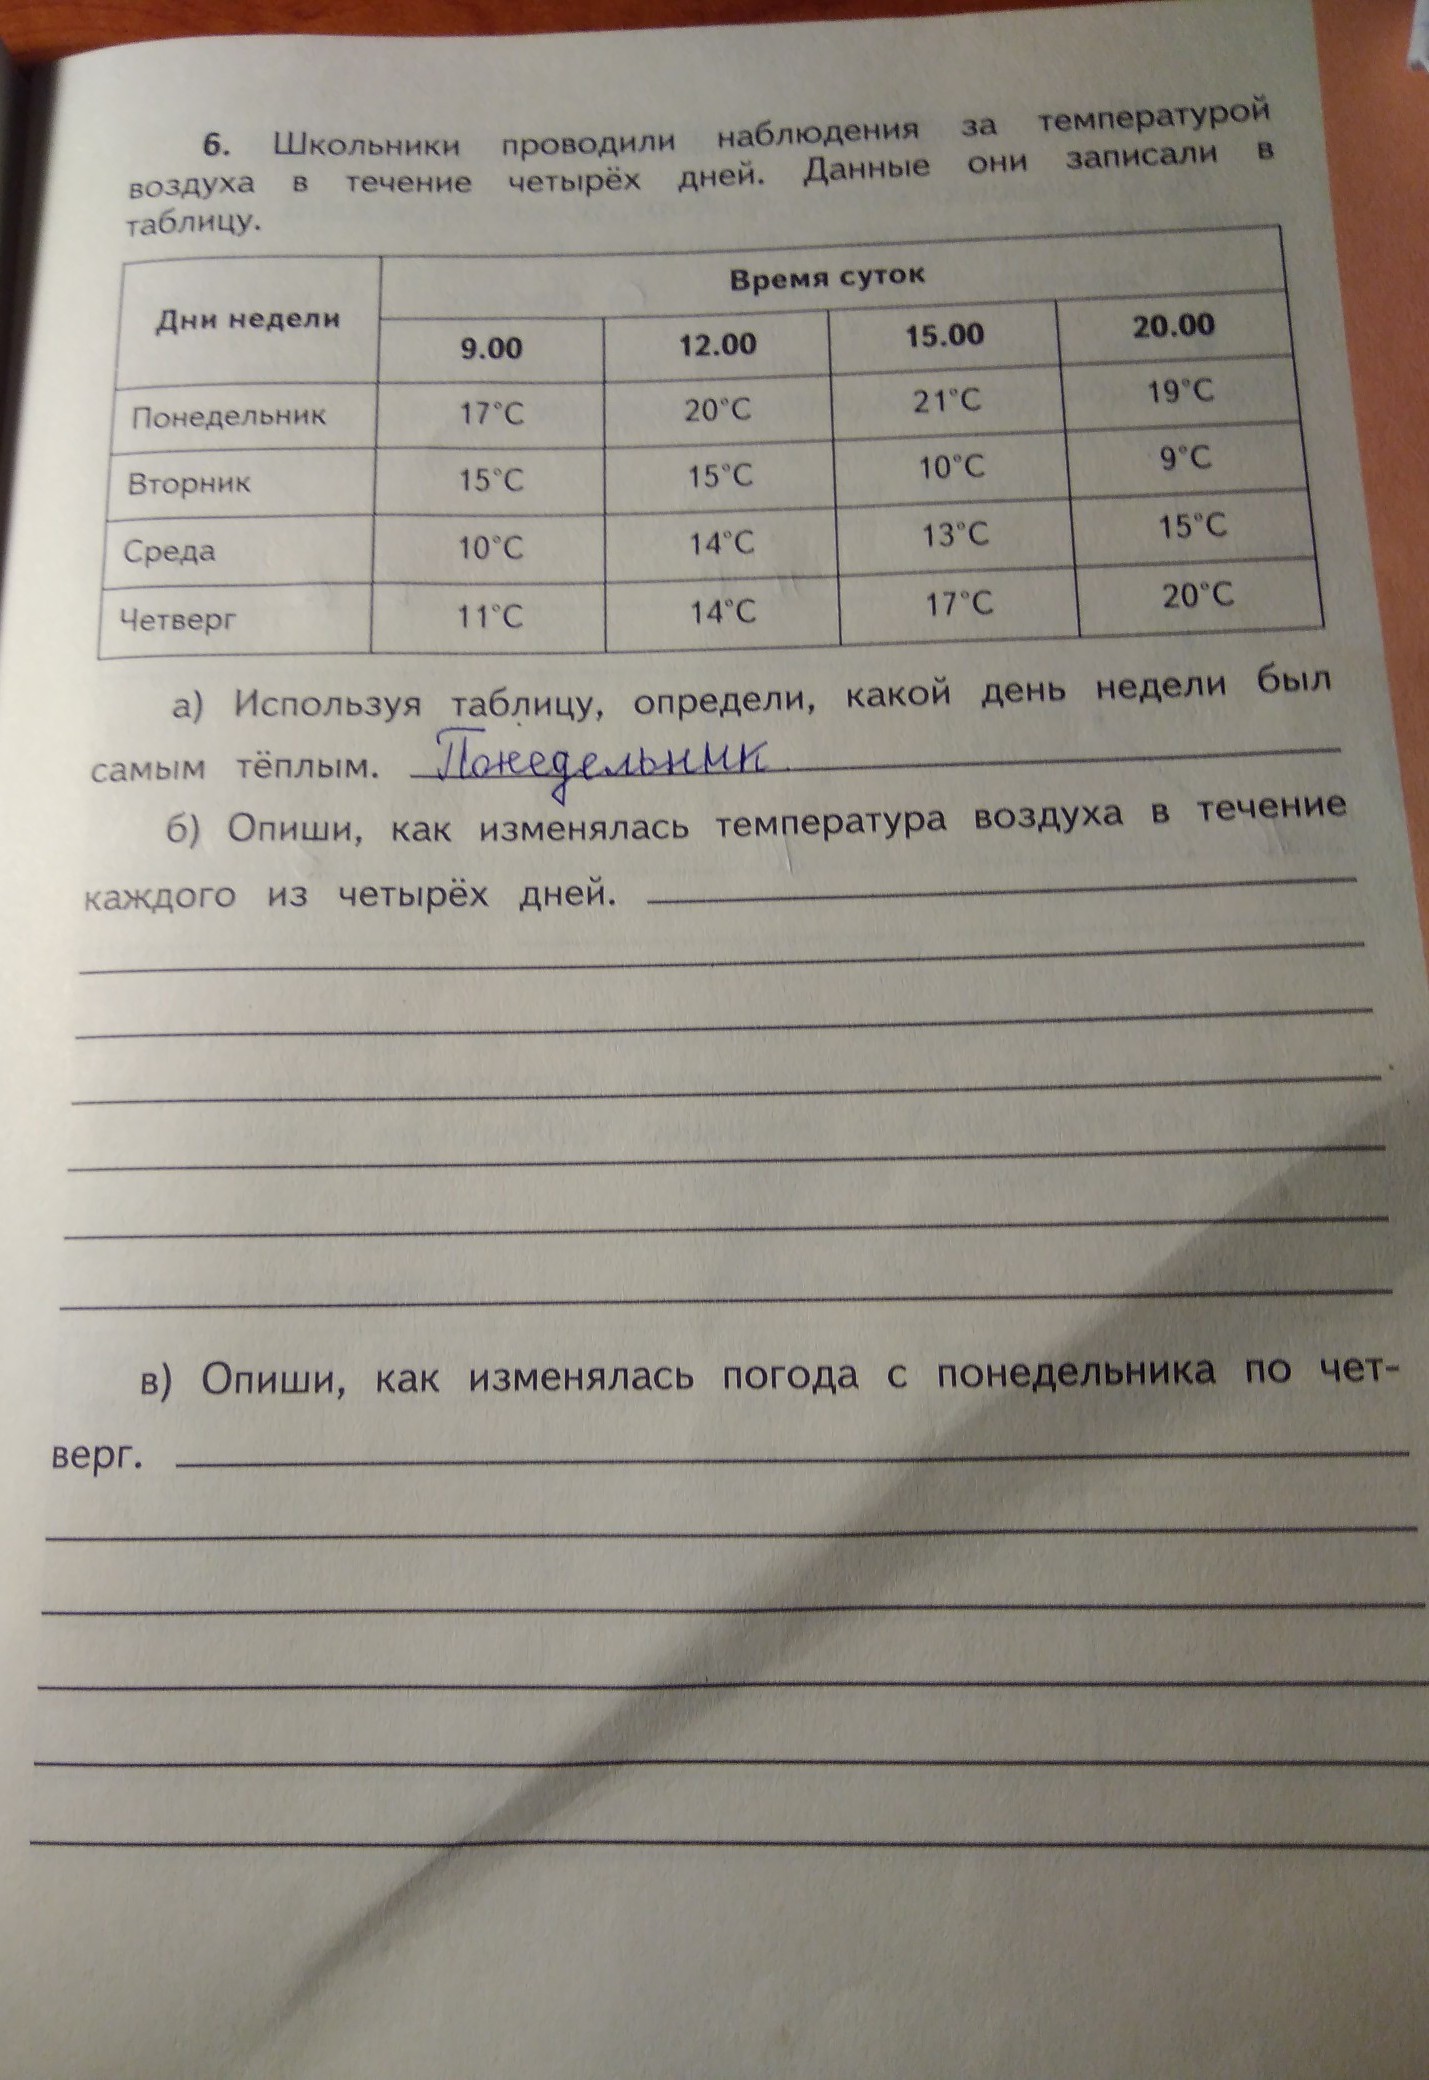 6. Школьники проводили наблюдения за температурой
воздуха в течение четырёх дней. Данные они записали в
таблицу.
Дни недели
Время суток
9.00 12.00 15.00 20.00
Понедельник 17°C 20°C 21°C 19°C
Вторник 15°C 15°C 10°C 9°C
Среда 10°C 14°C 13°C 15°C
Четверг 11°C 14°C 17°C 20°C
а) Используя таблицу, определи, какой день недели был
самым тёплым. Понедельник
б) Опиши, как изменялась температура воздуха в течение
каждого из четырёх дней.
в) Опиши, как изменялась погода с понедельника по чет-
верг.